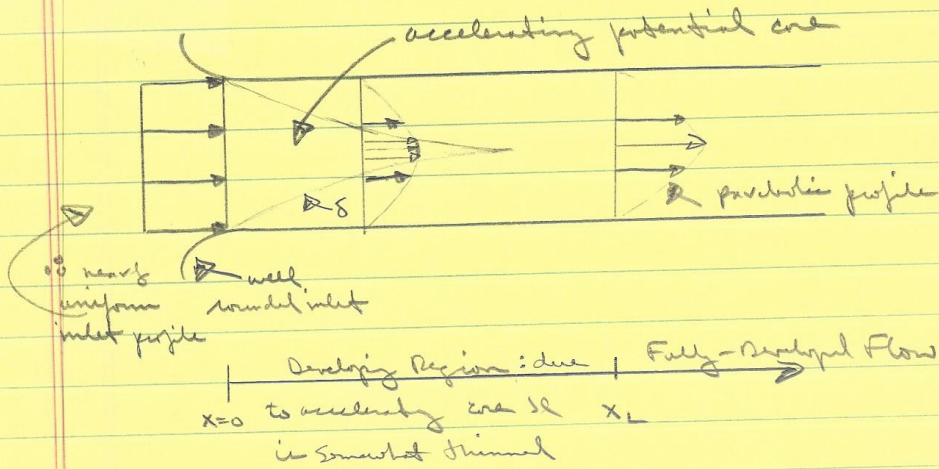 accelerating potential core
δ
parabolic profile
∴ nearly
uniform
inlet profile
well
rounded inlet
Developing Region: due
to accelerating core BL
is somewhat thinned
Fully-Developed Flow
x=0
X_L